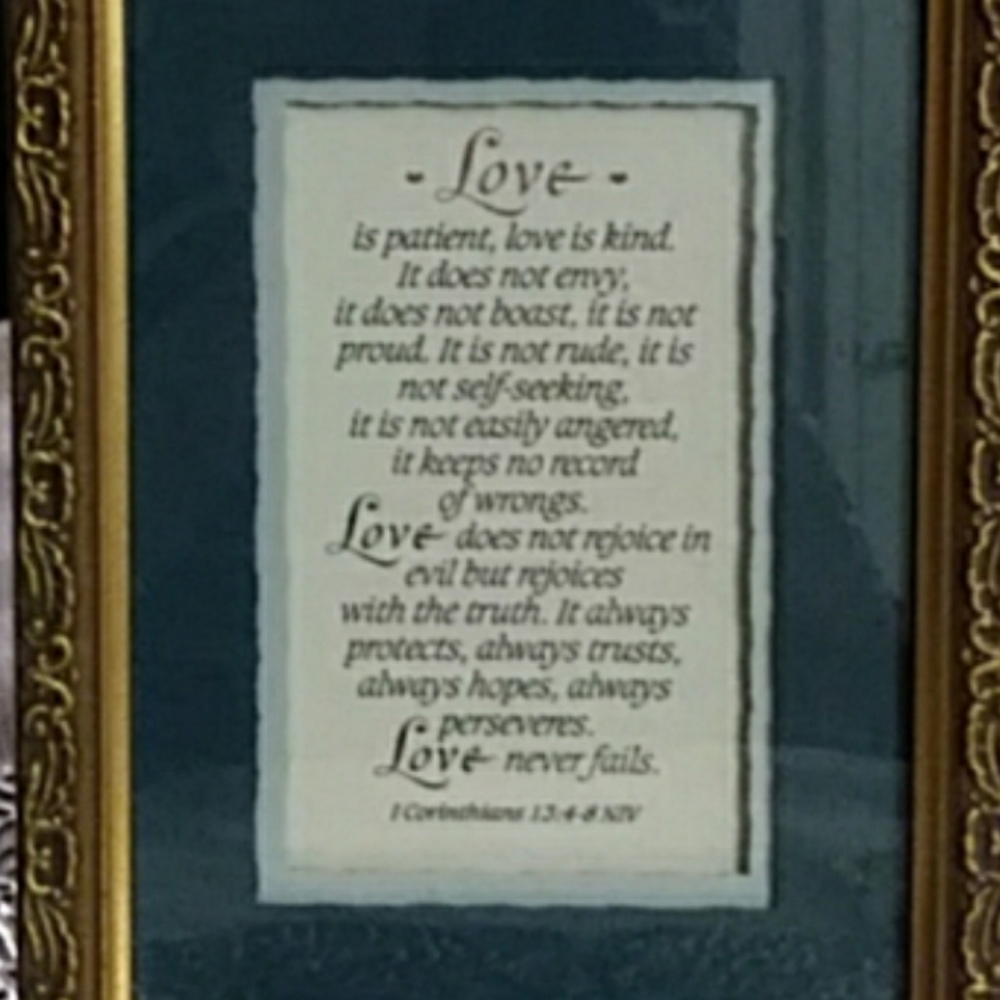 - Love -
is patient, love is kind.
It does not envy,
it does not boast, it is not
proud. It is not rude, it is
not self-seeking,
it is not easily angered,
it keeps no record
of wrongs.
Love does not rejoice in
evil but rejoices
with the truth. It always
protects, always trusts,
always hopes, always
perseveres.
Love never fails.
1 Corinthians 13:4-8 NIV